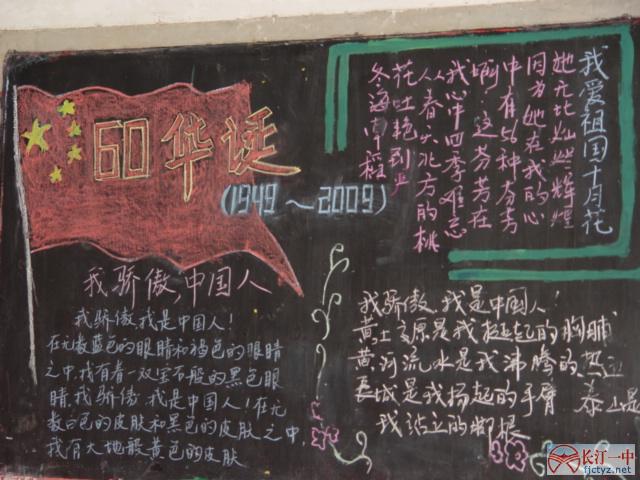 60华诞
(1949～2009)
我骄傲,中国人
我骄傲,我是中国人!
在无数蓝色的眼睛和褐色的眼睛
之中,我有着一双宝石般的黑色眼
睛,我骄傲,我是中国人!在无
数白色的皮肤和黑色的皮肤之中,
我有大地般黄色的皮肤
我爱祖国十月花
她无比灿烂辉煌
因为她在我的心
中有56种芬芳
啊!这芬芳在
我心中四季难忘
从春天北方的桃
花吐艳到
冬海
我骄傲,我是中国人!
黄土高原是我挺起的胸脯
黄河流水是我沸腾的热血
长城是我扬起的手臂
泰山是
我站立的脚跟
长汀一中
fjctyz.net